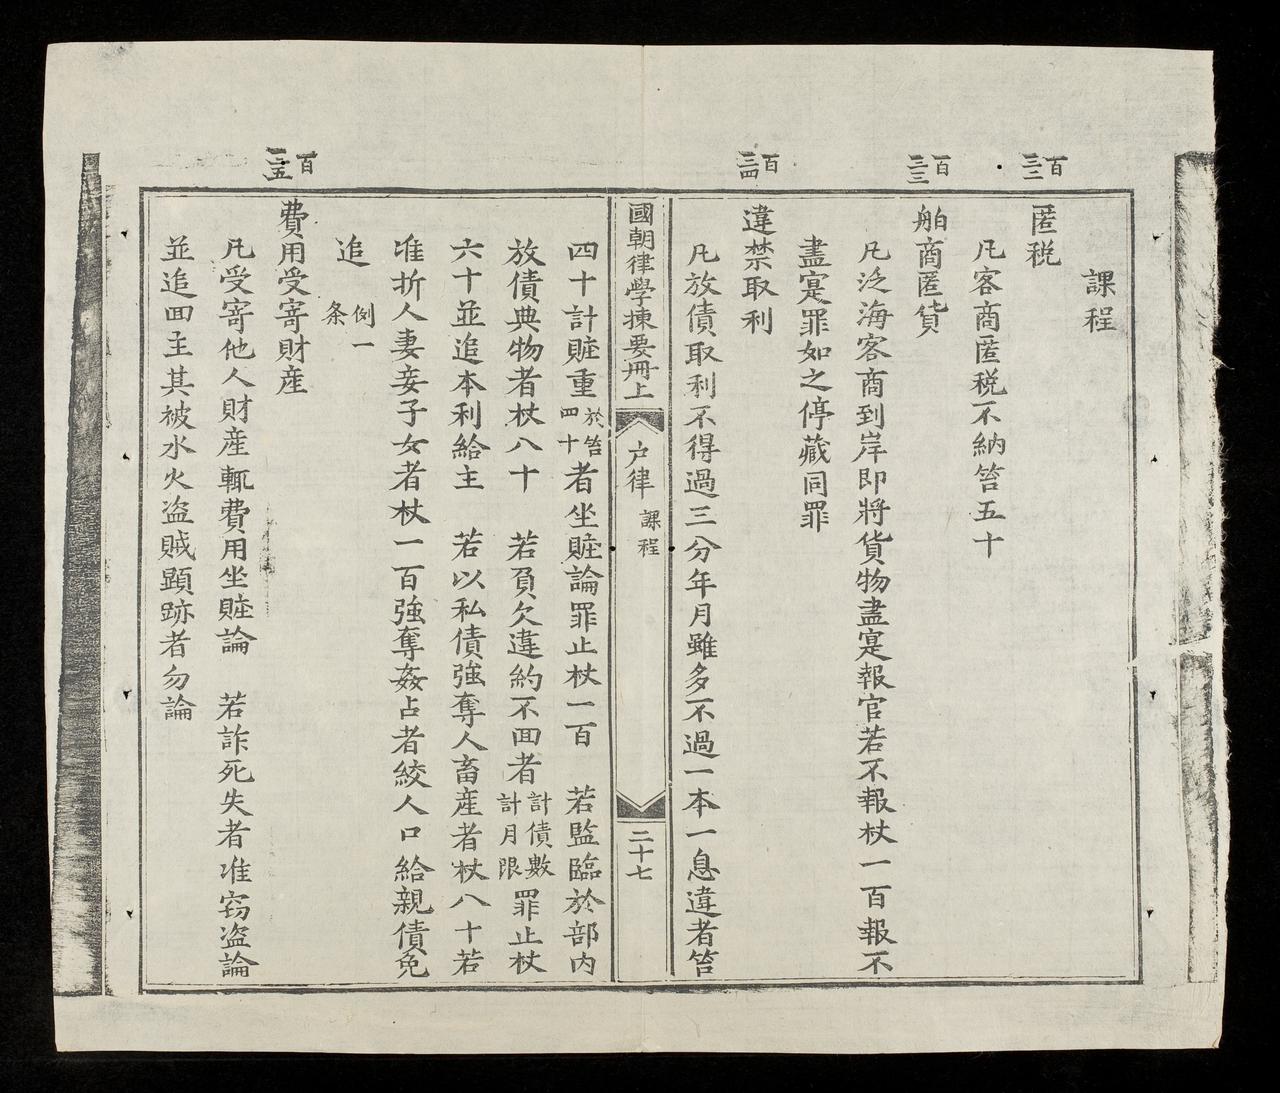 課程
百三二
匿税
凢客商匿税不納笞五十
百三三
舶商匿貨
凢泛海客商到岸即將貨物盡寔報官若不報杖一百報不
盡寔罪如之停藏同罪
百三四
違禁取利
凢放債取利不得過三分年月雖多不過一本一息違者笞
國朝律學揀要冊上 户律 課程 二十七
四十計賍重於笞四十者坐賍論罪止杖一百 若監臨於部内
放債典物者杖八十 若負欠違約不囬者計債數計月限罪止杖
六十並追本利給主 若以私債強奪人畜産者杖八十若
准折人妻妾子女者杖一百強奪姦占者絞人口給親債免
追 例一条
百三五
費用受寄財産
凢受寄他人財産輒費用坐賍論 若詐死失者准窃盗論
並追囬主其被水火盗賊顕跡者勿論